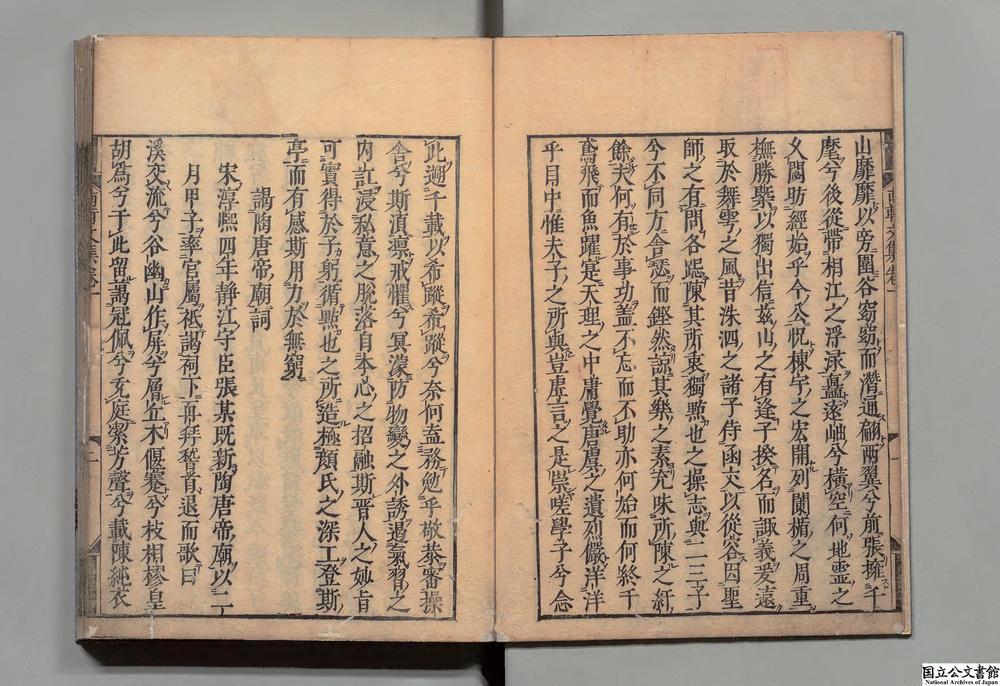 山靡靡以旁圍谷窈窈而潛通翩兩翼兮前張擁千
麾兮後從帶相江之浮淥矗遠岫兮橫空何地靈之
久閟昉經始乎今公怳棟宇之宏開列闌楯之周重
撫勝槩以獨出信茲山之有逢予揆名而諏義爰遠
取於舞雩之風昔洙泗之諸子侍函丈以從容因聖
師之有問各跽陳其所衷獨點也之操志與二三子
兮不同方舍瑟而鏗然諒其樂之素充味所陳之紆
餘夫何有於事功蓋不忘而不助亦何始而何終于
鳶飛而魚躍寔天理之中庸覺唐虞之遺烈儼洋洋
乎目中惟夫子之所與豈虛言之是崇嗟學子兮念
此遡千載以希蹤希蹤兮奈何盍務勉乎敬恭審操
舍兮斯須凜戒懼兮冥濛防物變之外誘遏氣習之
内訌浸私意之脫落自本心之昭融斯昔人之妙旨
可實得於予躬循點也之所造極顏氏之深工登斯
亭而有感斯用力於無窮
謁陶唐帝廟詞
宋淳熙四年靜江守臣張某既新陶唐帝廟以二
月甲子率官屬祗謁祠下再拜稽首退而歌曰
溪交流兮谷幽山作屏兮層丘木偃蹇兮枝相樛皇
胡爲兮于此留謁冠佩兮充庭潔芳馨兮載陳純衣
国立公文書館
National Archives of Japan